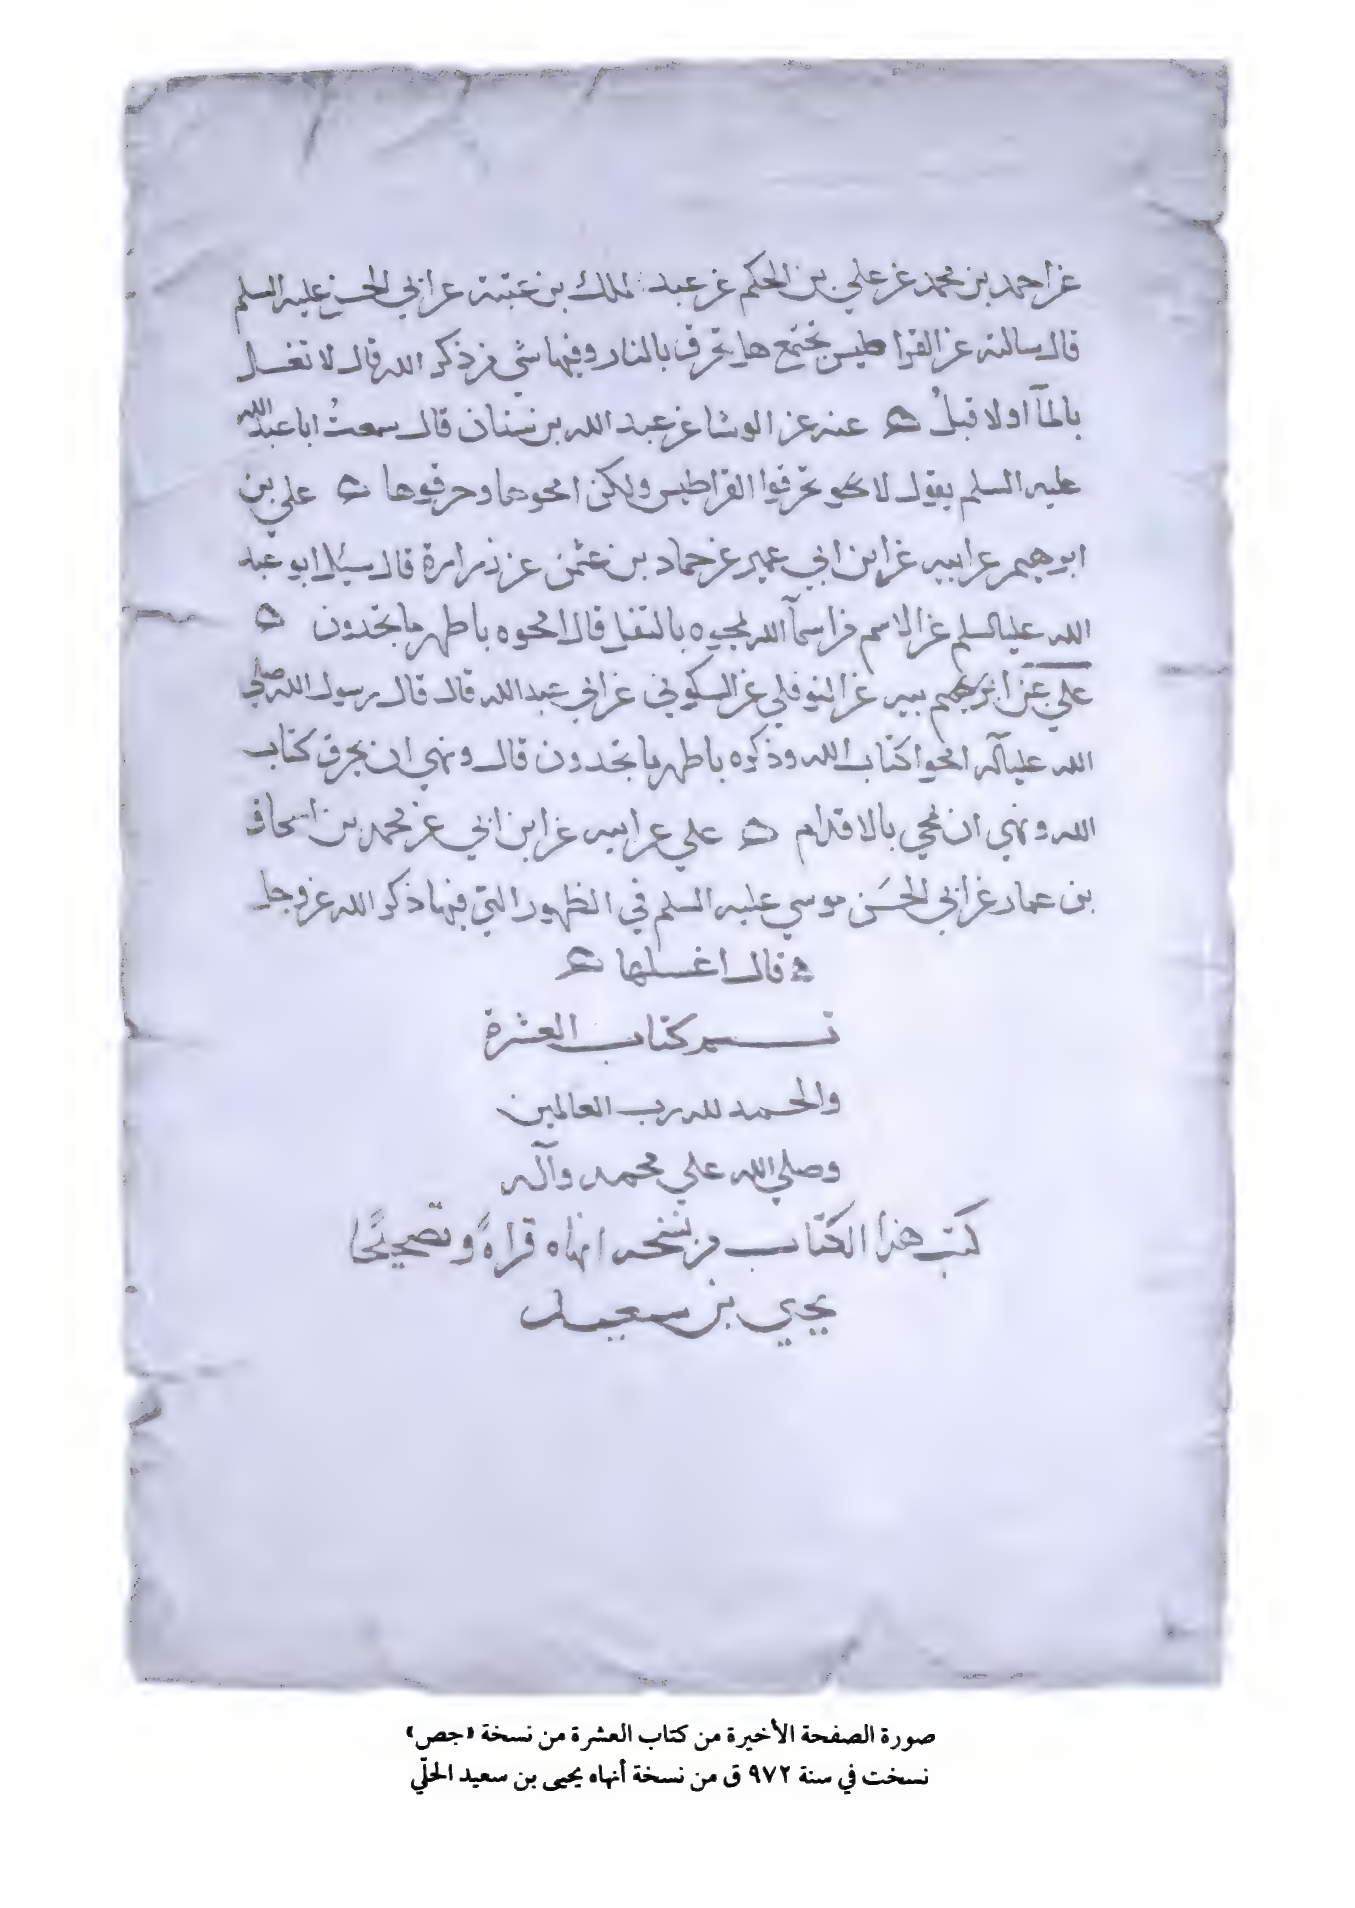 عن احمد بن محمد عن علي بن الحكم عن عبد الملك بن عتبة عن ابي الحسن عليه السلم
قال سالته عن القراطيس تجتمع هل تحرق بالنار وفيها شي من ذكر الله قال لا تغسل
بالمآ اولا قبلُ ه عنه عن الوشا عن عبد الله بن سنان قال سمعتُ ابا عبد الله
عليه السلم يقول لا تحرقوا القراطيس ولكن امحوها وحرقوها ه علي بن
ابرهيم عن ابيه عن ابن ابي عمير عن حماد بن عثمن عن زرارة قال سيل ابو عبد
الله عليه السلم عن الاسم من اسمآ الله يمحوه بالتفل قال امحوه باطهر ما تجدون ه
علي عن ابيه عن النوفلي عن السكوني عن ابي عبد الله قال قال رسول الله صلى
الله عليه وآله امحوا كتاب الله وذكره باطهر ما تجدون قال ونهي ان يحرق كتاب
الله ونهي ان يمحي بالاقدام ه علي عن ابيه عن ابن ابي عن محمد بن اسحاق
بن عمار عن ابي الحسَن موسي عليه السلم في الظهور التي فيها ذكر الله عز وجل
ه قال اغسلها ه
تم كتاب العشرة
والحمد لله رب العالمين
وصلي الله علي محمد وآله
كتب هذا الكتاب من نسخه انهاه قراةً وتصحيحًا
يحيي بن سعيد
صورة الصفحة الأخيرة من كتاب العشرة من نسخة «جص»
نسخت في سنة ٩٧٢ ق من نسخة أنهاه يحيى بن سعيد الحلّي